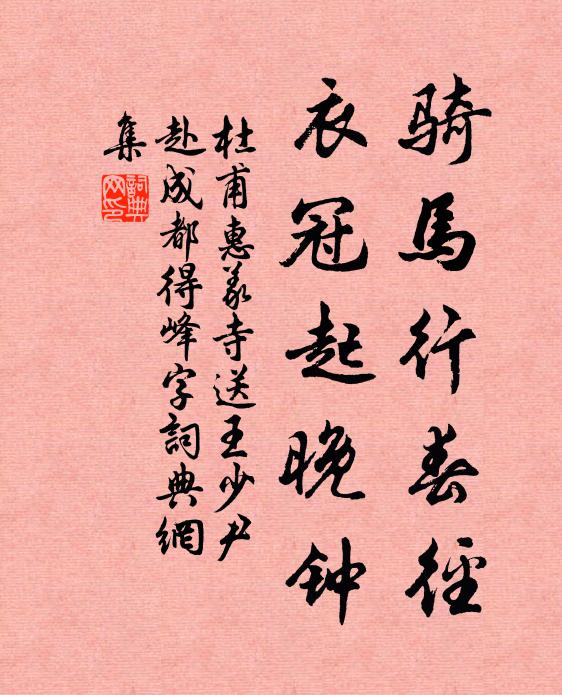 骑馬行春徑
衣冠起晚钟
杜甫惠义寺送王少尹
赴成都得峰字詞典網
集
詞典
网印